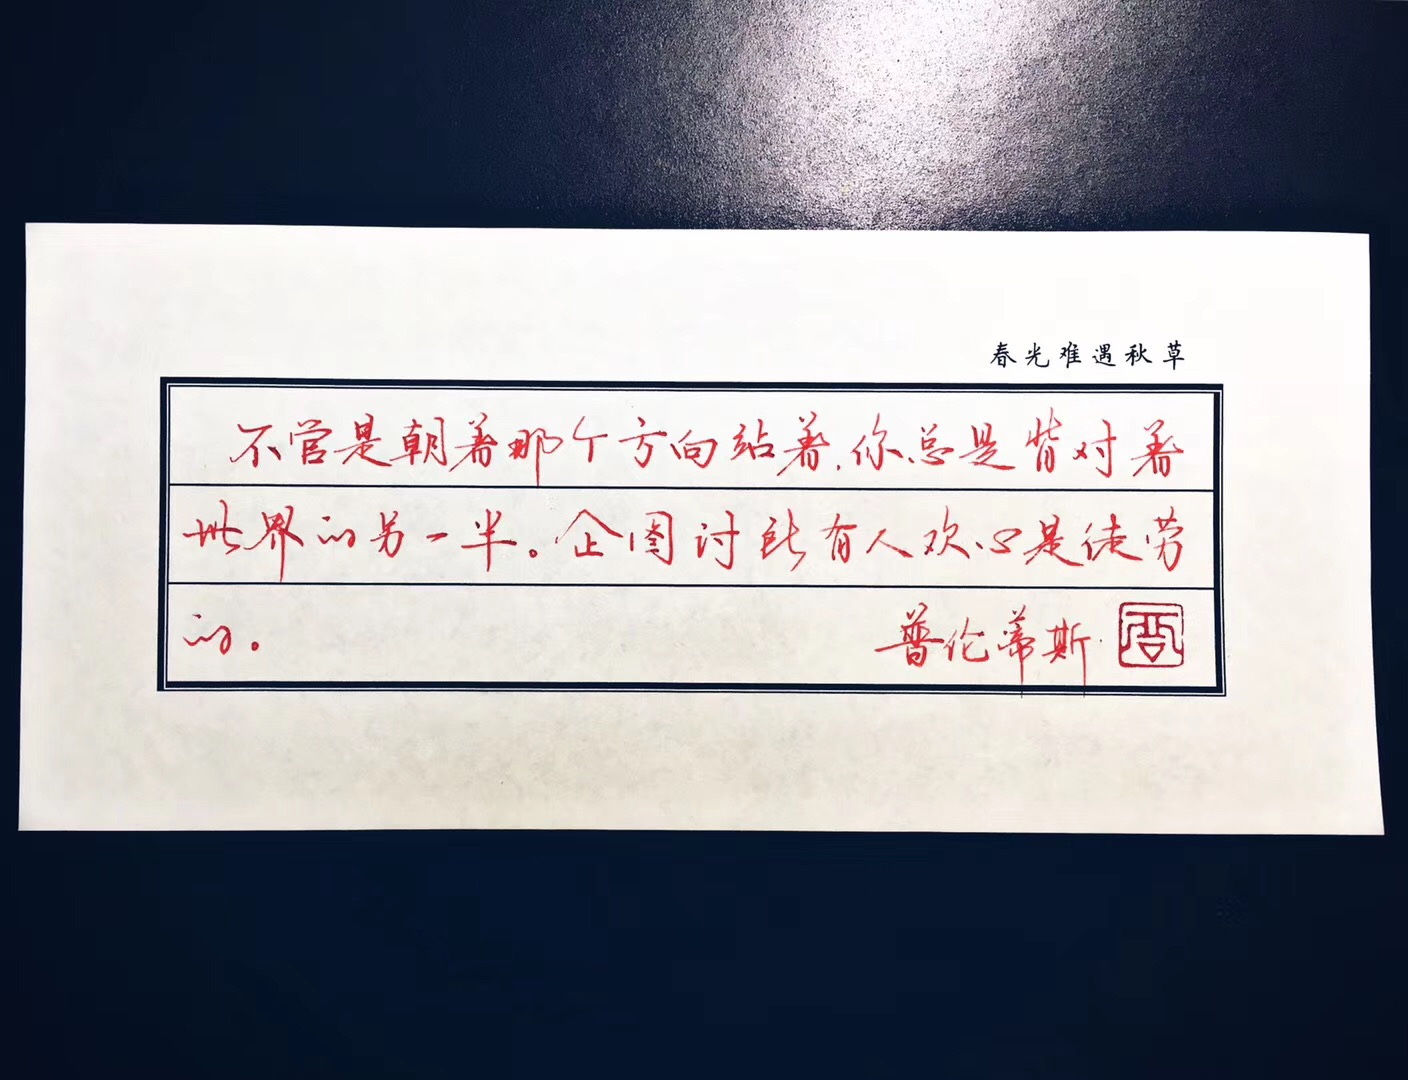 春光难遇秋草
不管是朝着那个方向站着,你总是背对着
世界的另一半。企图讨所有人欢心是徒劳
的。
普伦蒂斯